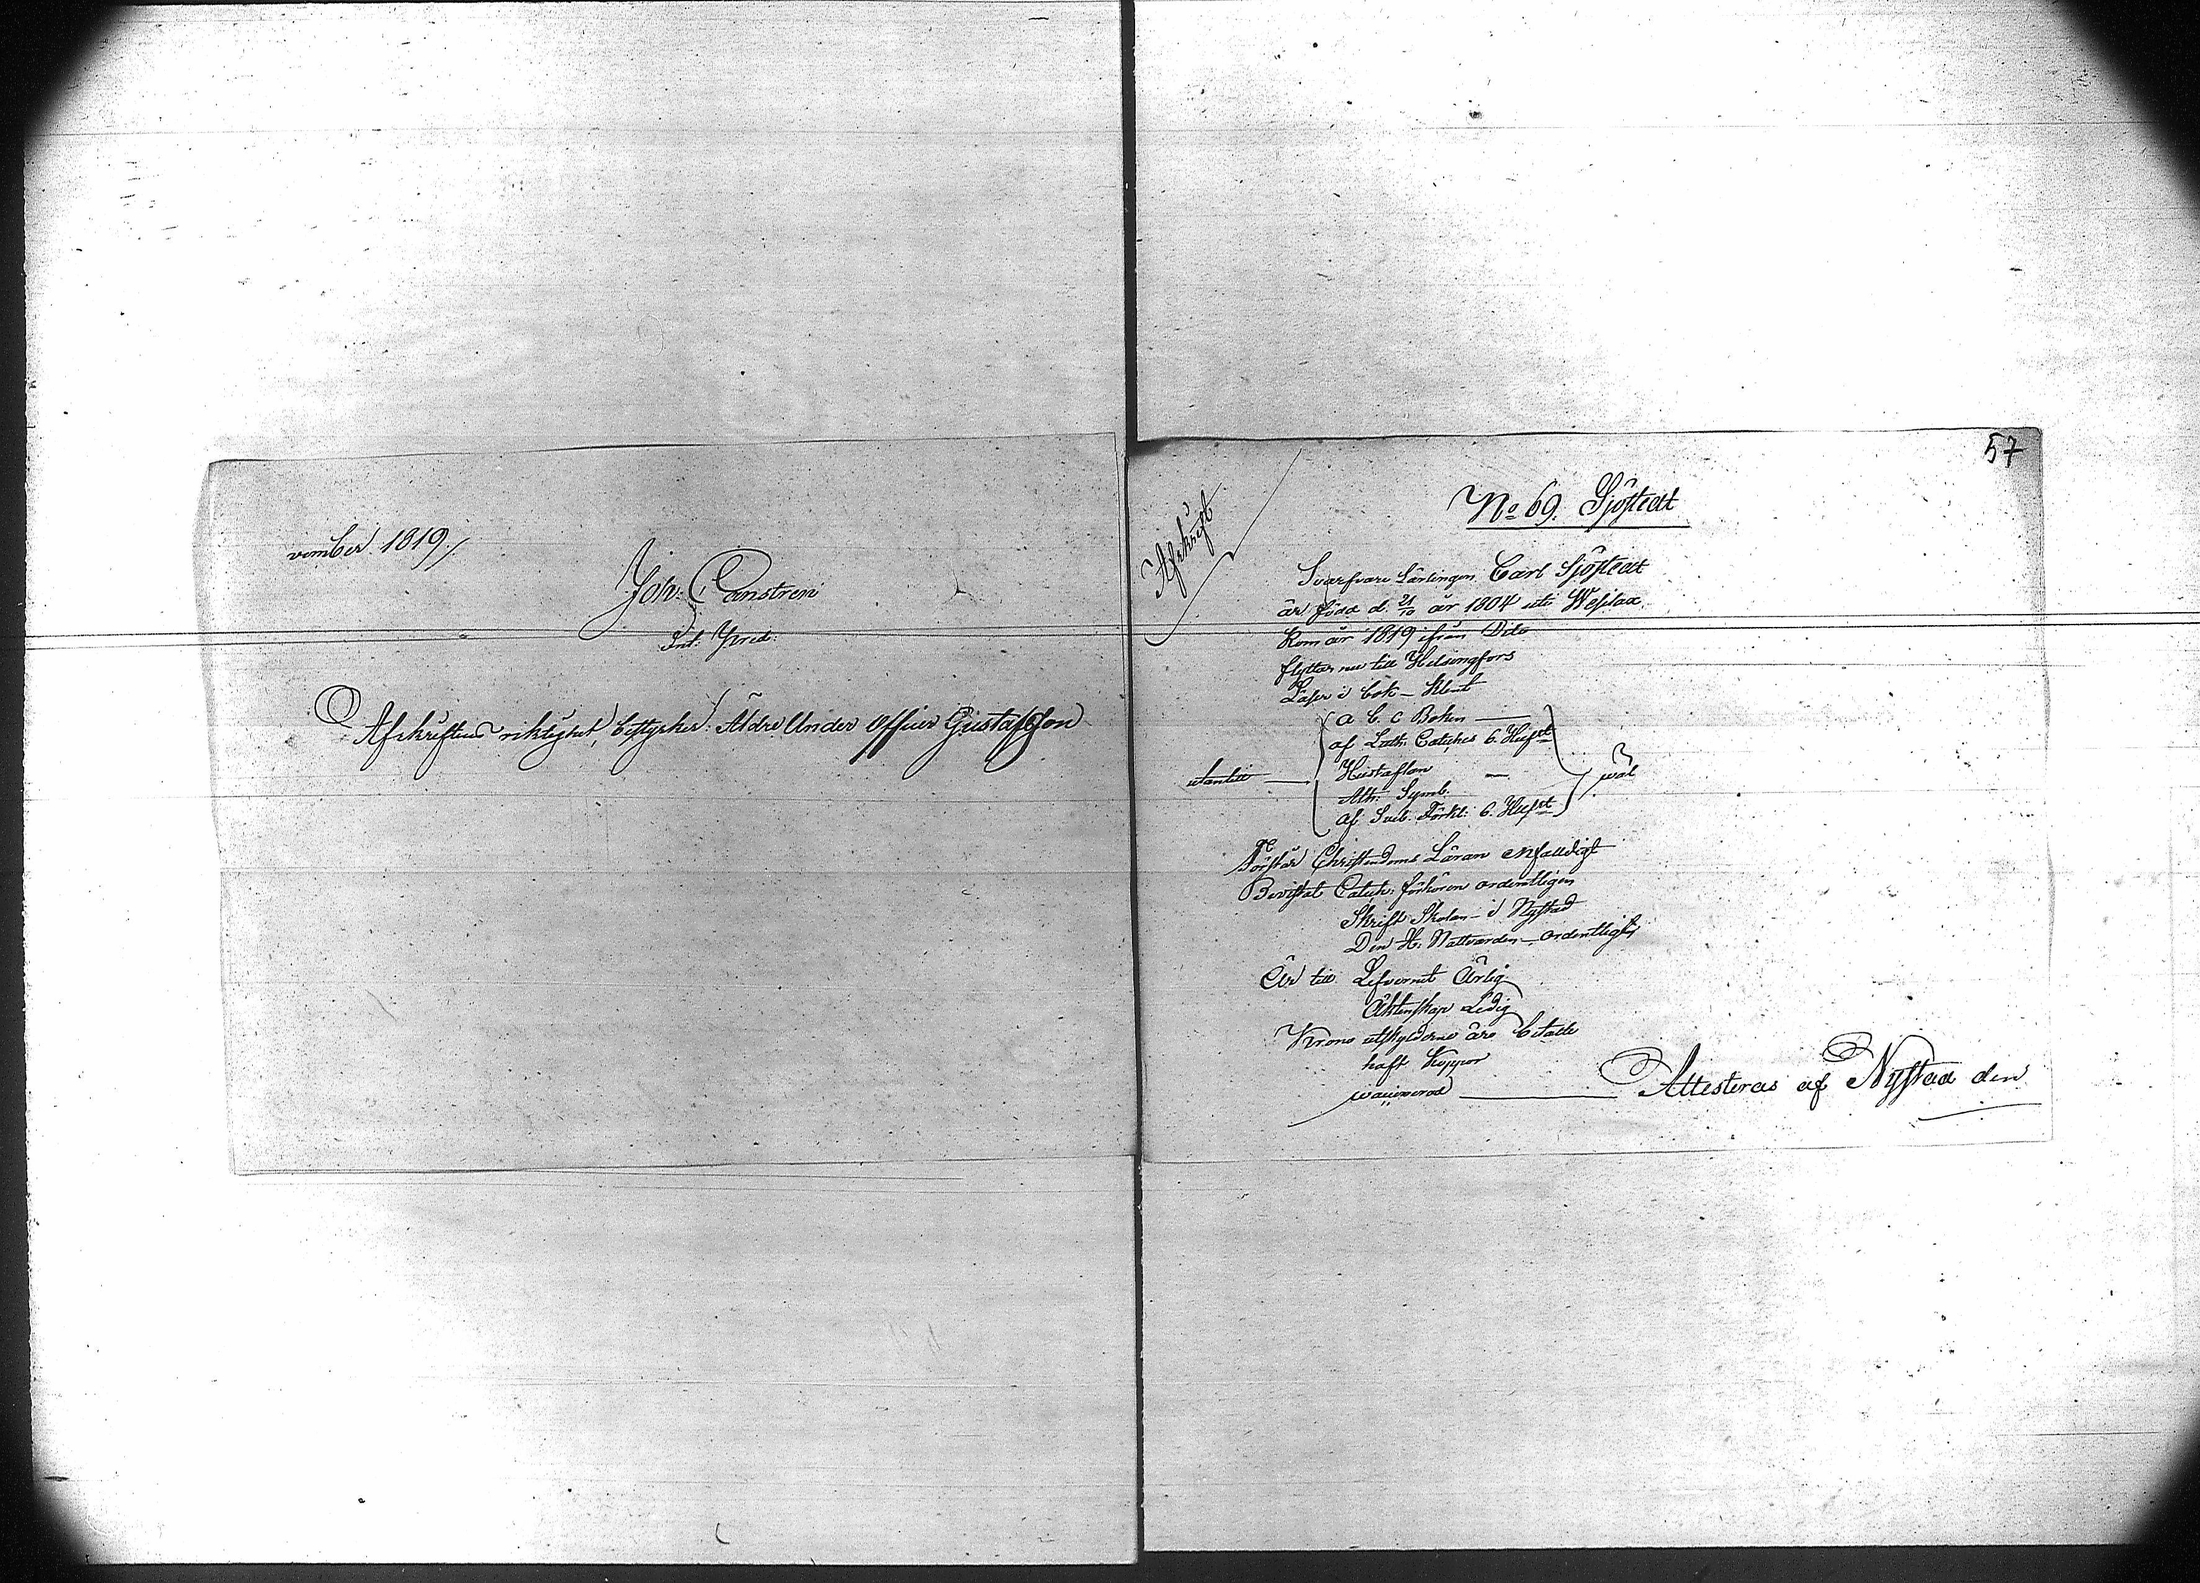 vember 1819 /
Joh: Canstren
Int: Pred:
Afskriftens riktighet, bestyrker: Äldre Under Officer Gustafsson
57
Afskrift
No 69. Sjöstedt
Svarfvare Lärlingen Carl Sjöstedt
är född d. 21/10 år 1804 uti
Kom år 1819 ifrån Dito
flyttar nu till Helsingfors
Läser i bok — Klent
utantill —
a b. c Boken —
af Luth: Cateches 6. Hufst
Hustaflan —
Ath: Symb.
af Sveb. Förkl: 6. Hufst
wäl
Förstår Christendoms Läran enfaldigt
Bevistat Catech: förhören ordentligen
Skrift Skolan — i Nystad
Den H: Nattvarden — ordentligen
Är till Lefvernet Ärlig
Äktenskap Ledig
Krono utskylderne äro betalte
haft Koppor
vaccinerad — Attesteras af Nystad den